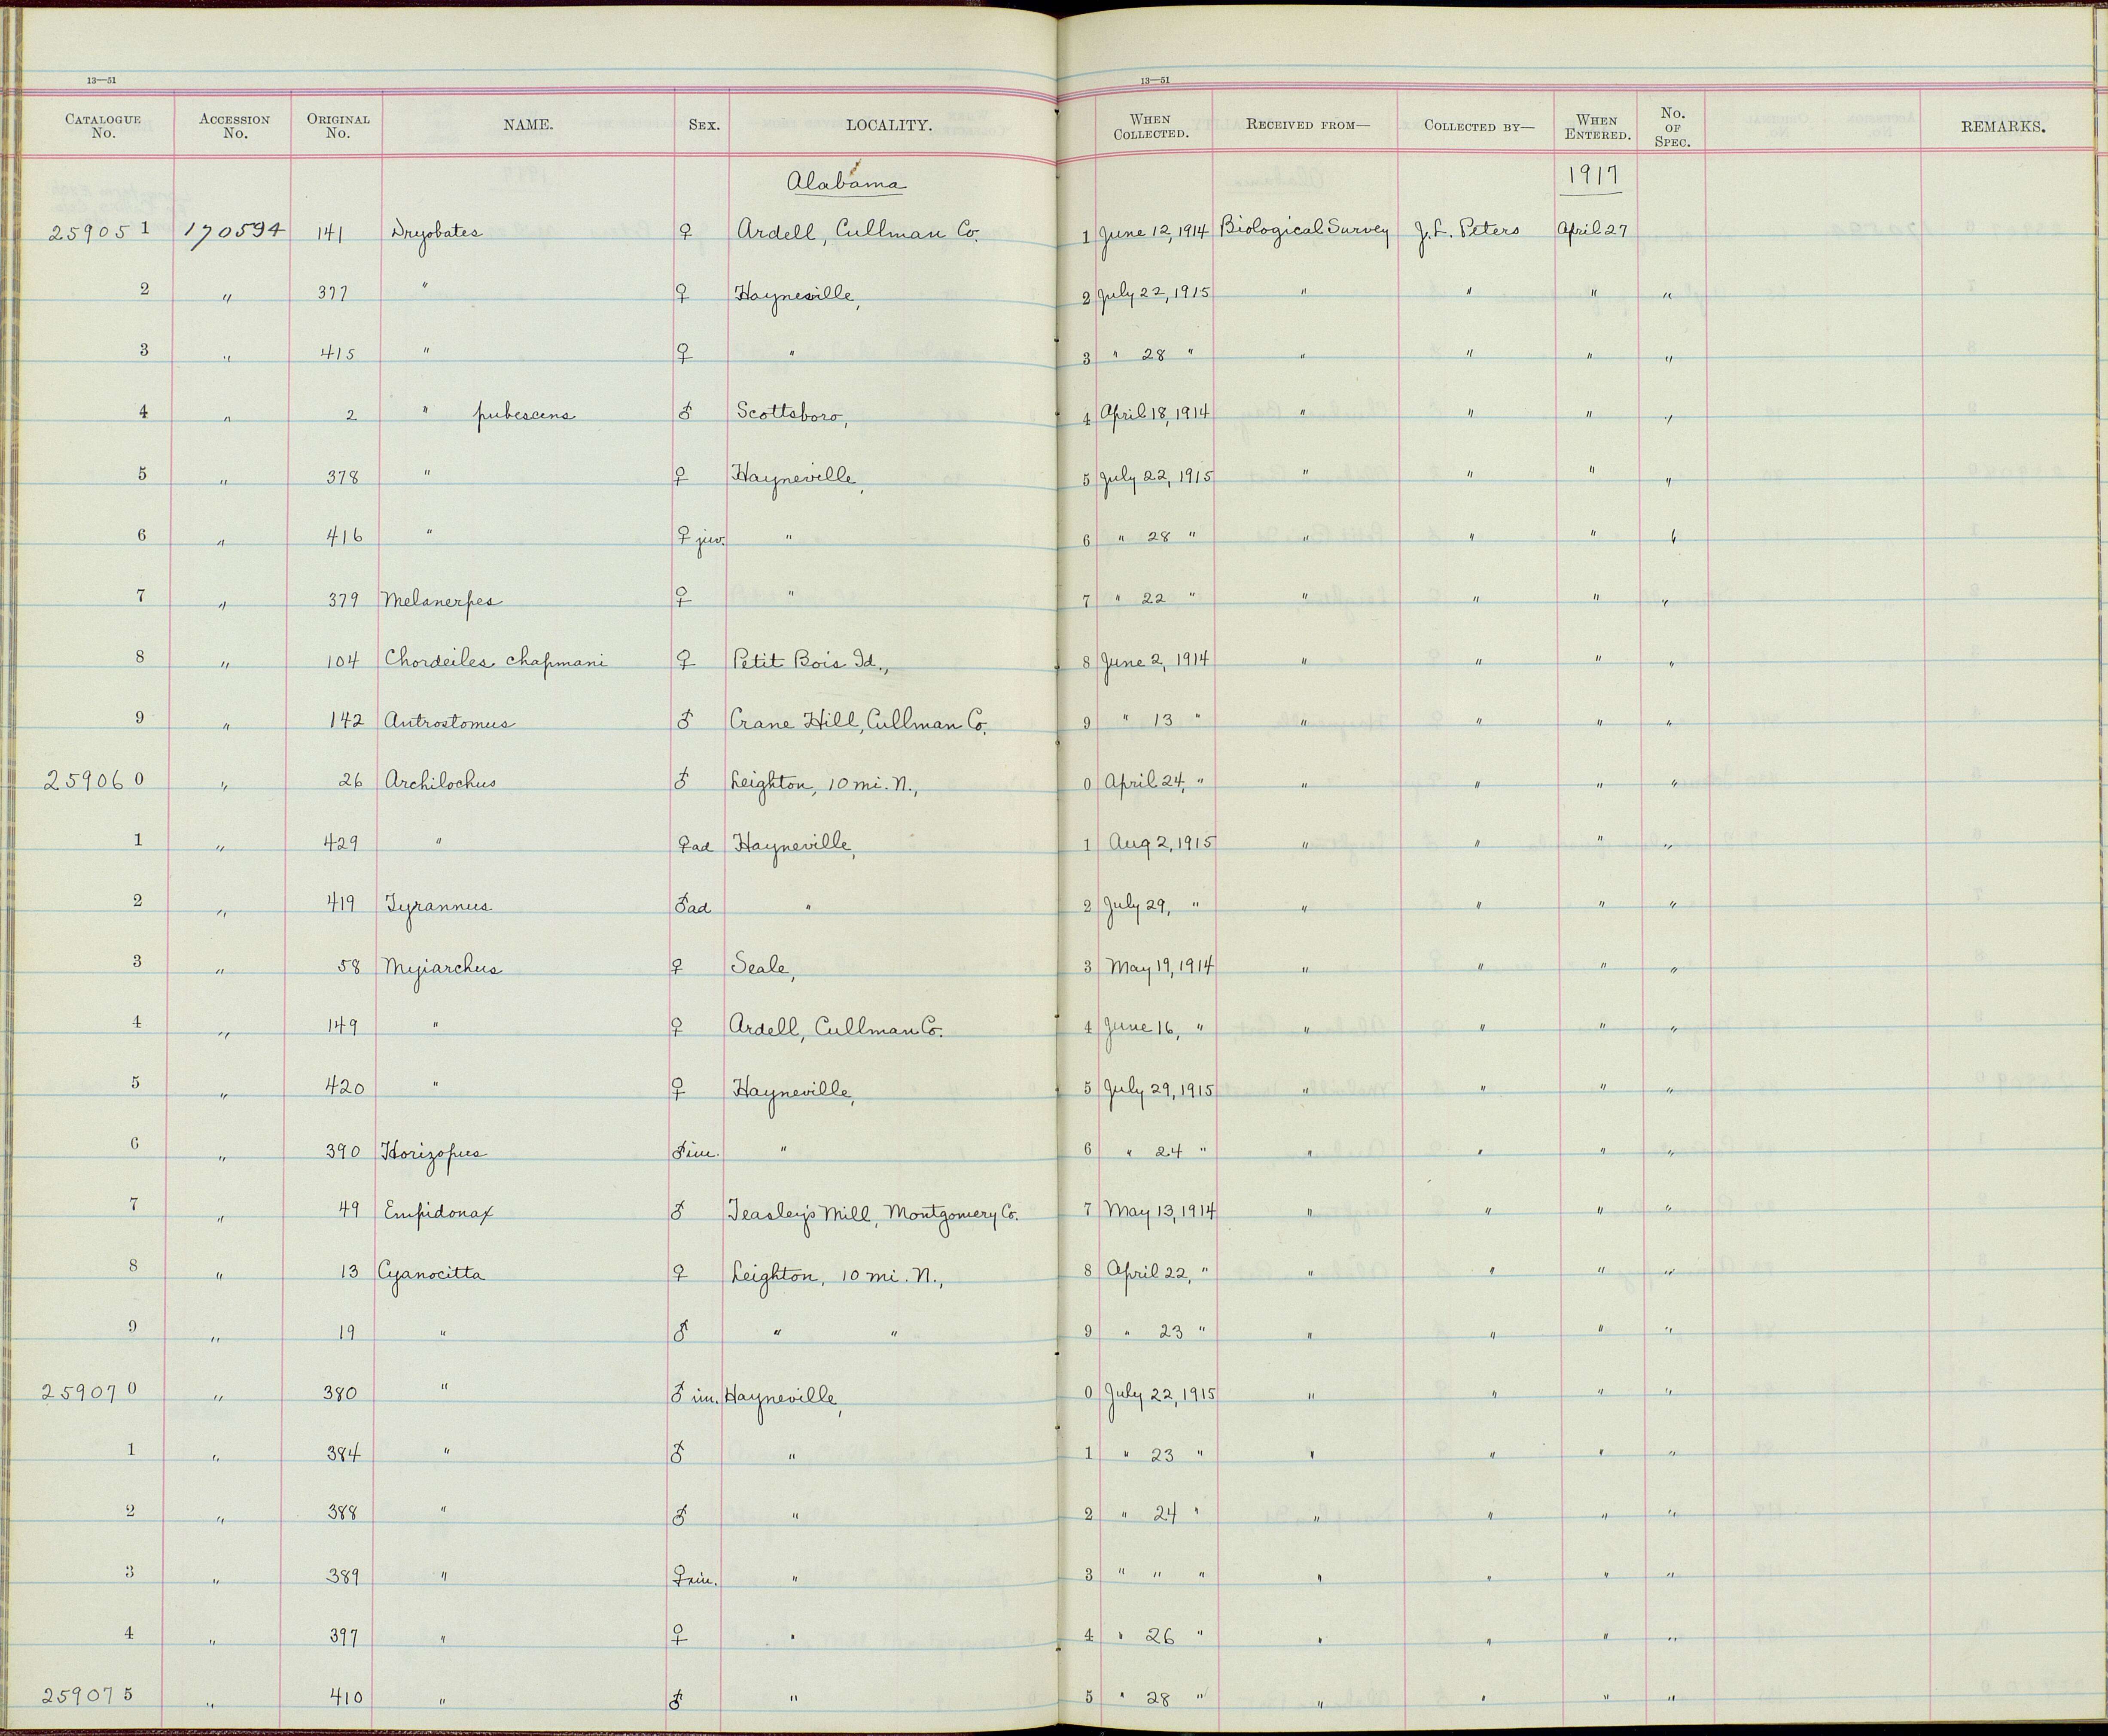 13—51 13—51
CATALOGUE No. ACCESSION No. ORIGINAL No. NAME. SEX. LOCALITY. WHEN COLLECTED. RECEIVED FROM— COLLECTED BY— WHEN ENTERED. No. OF SPEC. REMARKS.
Alabama 1917
25905 1 170594 141 Dryobates ♀ Ardell, Cullman Co. 1 June 12, 1914 Biological Survey J. L. Peters April 27
2 " 377 " ♀ Hayneville, 2 July 22, 1915 " " " "
3 " 415 " ♀ " 3 " 28 " " " " "
4 " 2 " pubescens ♂ Scottsboro, 4 April 18, 1914 " " " "
5 " 378 " ♀ Hayneville, 5 July 22, 1915 " " " "
6 " 416 " ♀ juv. " 6 " 28 " " " " "
7 " 379 Melanerpes ♀ " 7 " 22 " " " " "
8 " 104 Chordeiles chapmani ♀ Petit Bois Id., 8 June 2, 1914 " " " "
9 " 142 Antrostomus ♂ Crane Hill, Cullman Co. 9 " 13 " " " " "
25906 0 " 26 Archilochus ♂ Leighton, 10 mi. N., 0 April 24, " " " " "
1 " 429 " ♀ad Hayneville, 1 Aug 2, 1915 " " " "
2 " 419 Tyrannus ♂ad " 2 July 29, " " " " "
3 " 58 Myiarchus ♀ Seale, 3 May 19, 1914 " " " "
4 " 149 " ♀ Ardell, Cullman Co. 4 June 16, " " " " "
5 " 420 " ♀ Hayneville, 5 July 29, 1915 " " " "
6 " 390 Horizopus ♂im. " 6 " 24 " " " " "
7 " 49 Empidonax ♂ Teasley's Mill, Montgomery Co. 7 May 13, 1914 " " " "
8 " 13 Cyanocitta ♀ Leighton, 10 mi. N., 8 April 22, " " " " "
9 " 19 " ♂ " " 9 " 23 " " " " "
25907 0 " 380 " ♂ im. Hayneville, 0 July 22, 1915 " " " "
1 " 384 " ♂ " 1 " 23 " " " " "
2 " 388 " ♂ " 2 " 24 " " " " "
3 " 389 " ♀im. " 3 " " " " " " "
4 " 397 " ♀ " 4 " 26 " " " " "
25907 5 " 410 " ♂ " 5 " 28 " " " " "